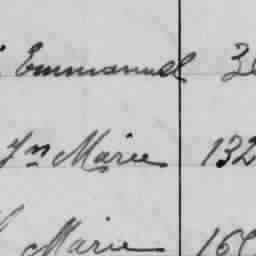 Emmanuel 30
Jn Marie 132
Marie 160